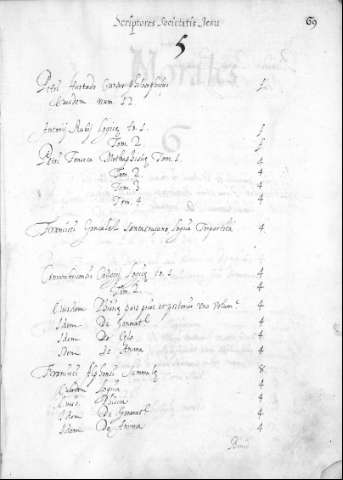 Scriptores Societatis Jesu 69
5
Petri Hurtado Cursus Philosophicus 1
Eiusdem num. 12
Antonij Rubij Logica to. 1. 1
Tom 2. 1
Petri Fonseca Methaphisica Tom 1. 4
Tom. 2. 4
Tom. 3 4
Tom. 4 4
Francisci Gonzalez Logica Tripartita 4
Conimbricensis Collegij Logica to. 1. 4
Tom 2. 4
Eiusdem Phisica pars prior et posterior uno volum. 4
Idem De Generat. 4
Idem De Celo 4
Idem De Anima 4
Francisci Alphonsi Summulæ 8
Eiusdem Logica 4
Eiusd. Phisica 4
Idem De Generat. 4
Idem De Anima 4